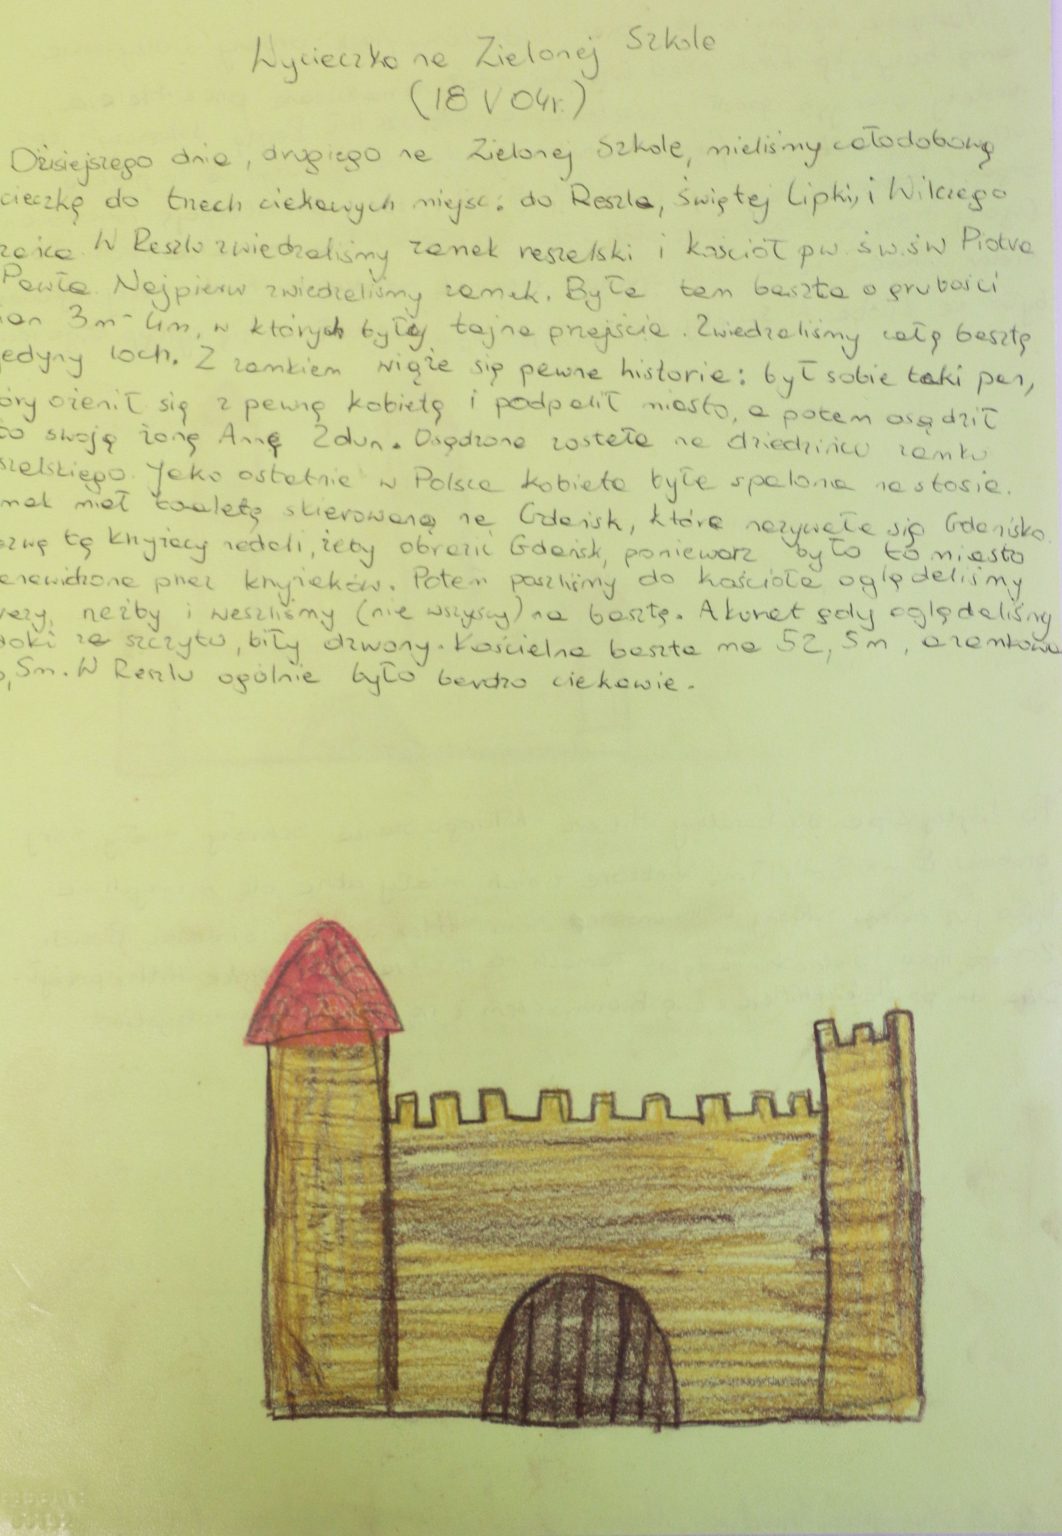 Wycieczka na Zielonej Szkole
(18 V 04r.)
Dzisiejszego dnia, drugiego na Zielonej Szkole, mieliśmy całodobową
cieczkę do trzech ciekawych miejsc: do Reszla, Świętej Lipki, i Wilczego
W Reszlu zwiedzaliśmy zamek reszelski i kościół pw. św.św Piotra
Pawła. Najpierw zwiedzaliśmy zamek. Była tam baszta o grubości
ian 3m-4m, w których były tajne przejścia. Zwiedzaliśmy całą basztę
jedyny loch. Z zamkiem wiąże się pewna historia: był sobie taki pan,
óry ożenił się z pewną kobietą i podpalił miasto, a potem osądził
o swoją żonę Annę Zdun. Osądzona została na dziedzińcu zamku
szelskiego. Jako ostatnia w Polsce kobieta była spalona na stosie.
mek miał toaletę skierowaną na Gdańsk, która nazywała się Gdanisko.
zwę tę krzyżacy nadali, żeby obrazić Gdańsk, ponieważ było to miasto
enawidzone przez krzyżaków. Potem poszliśmy do kościoła oglądaliśmy
rzeźby i weszliśmy (nie wszyscy) na basztę. Akurat gdy oglądaliśmy
doki ze szczytu, biły dzwony. Kościelna baszta ma 52,5m, a zamkowa
,5m. W Reszlu ogólnie było bardzo ciekawie.